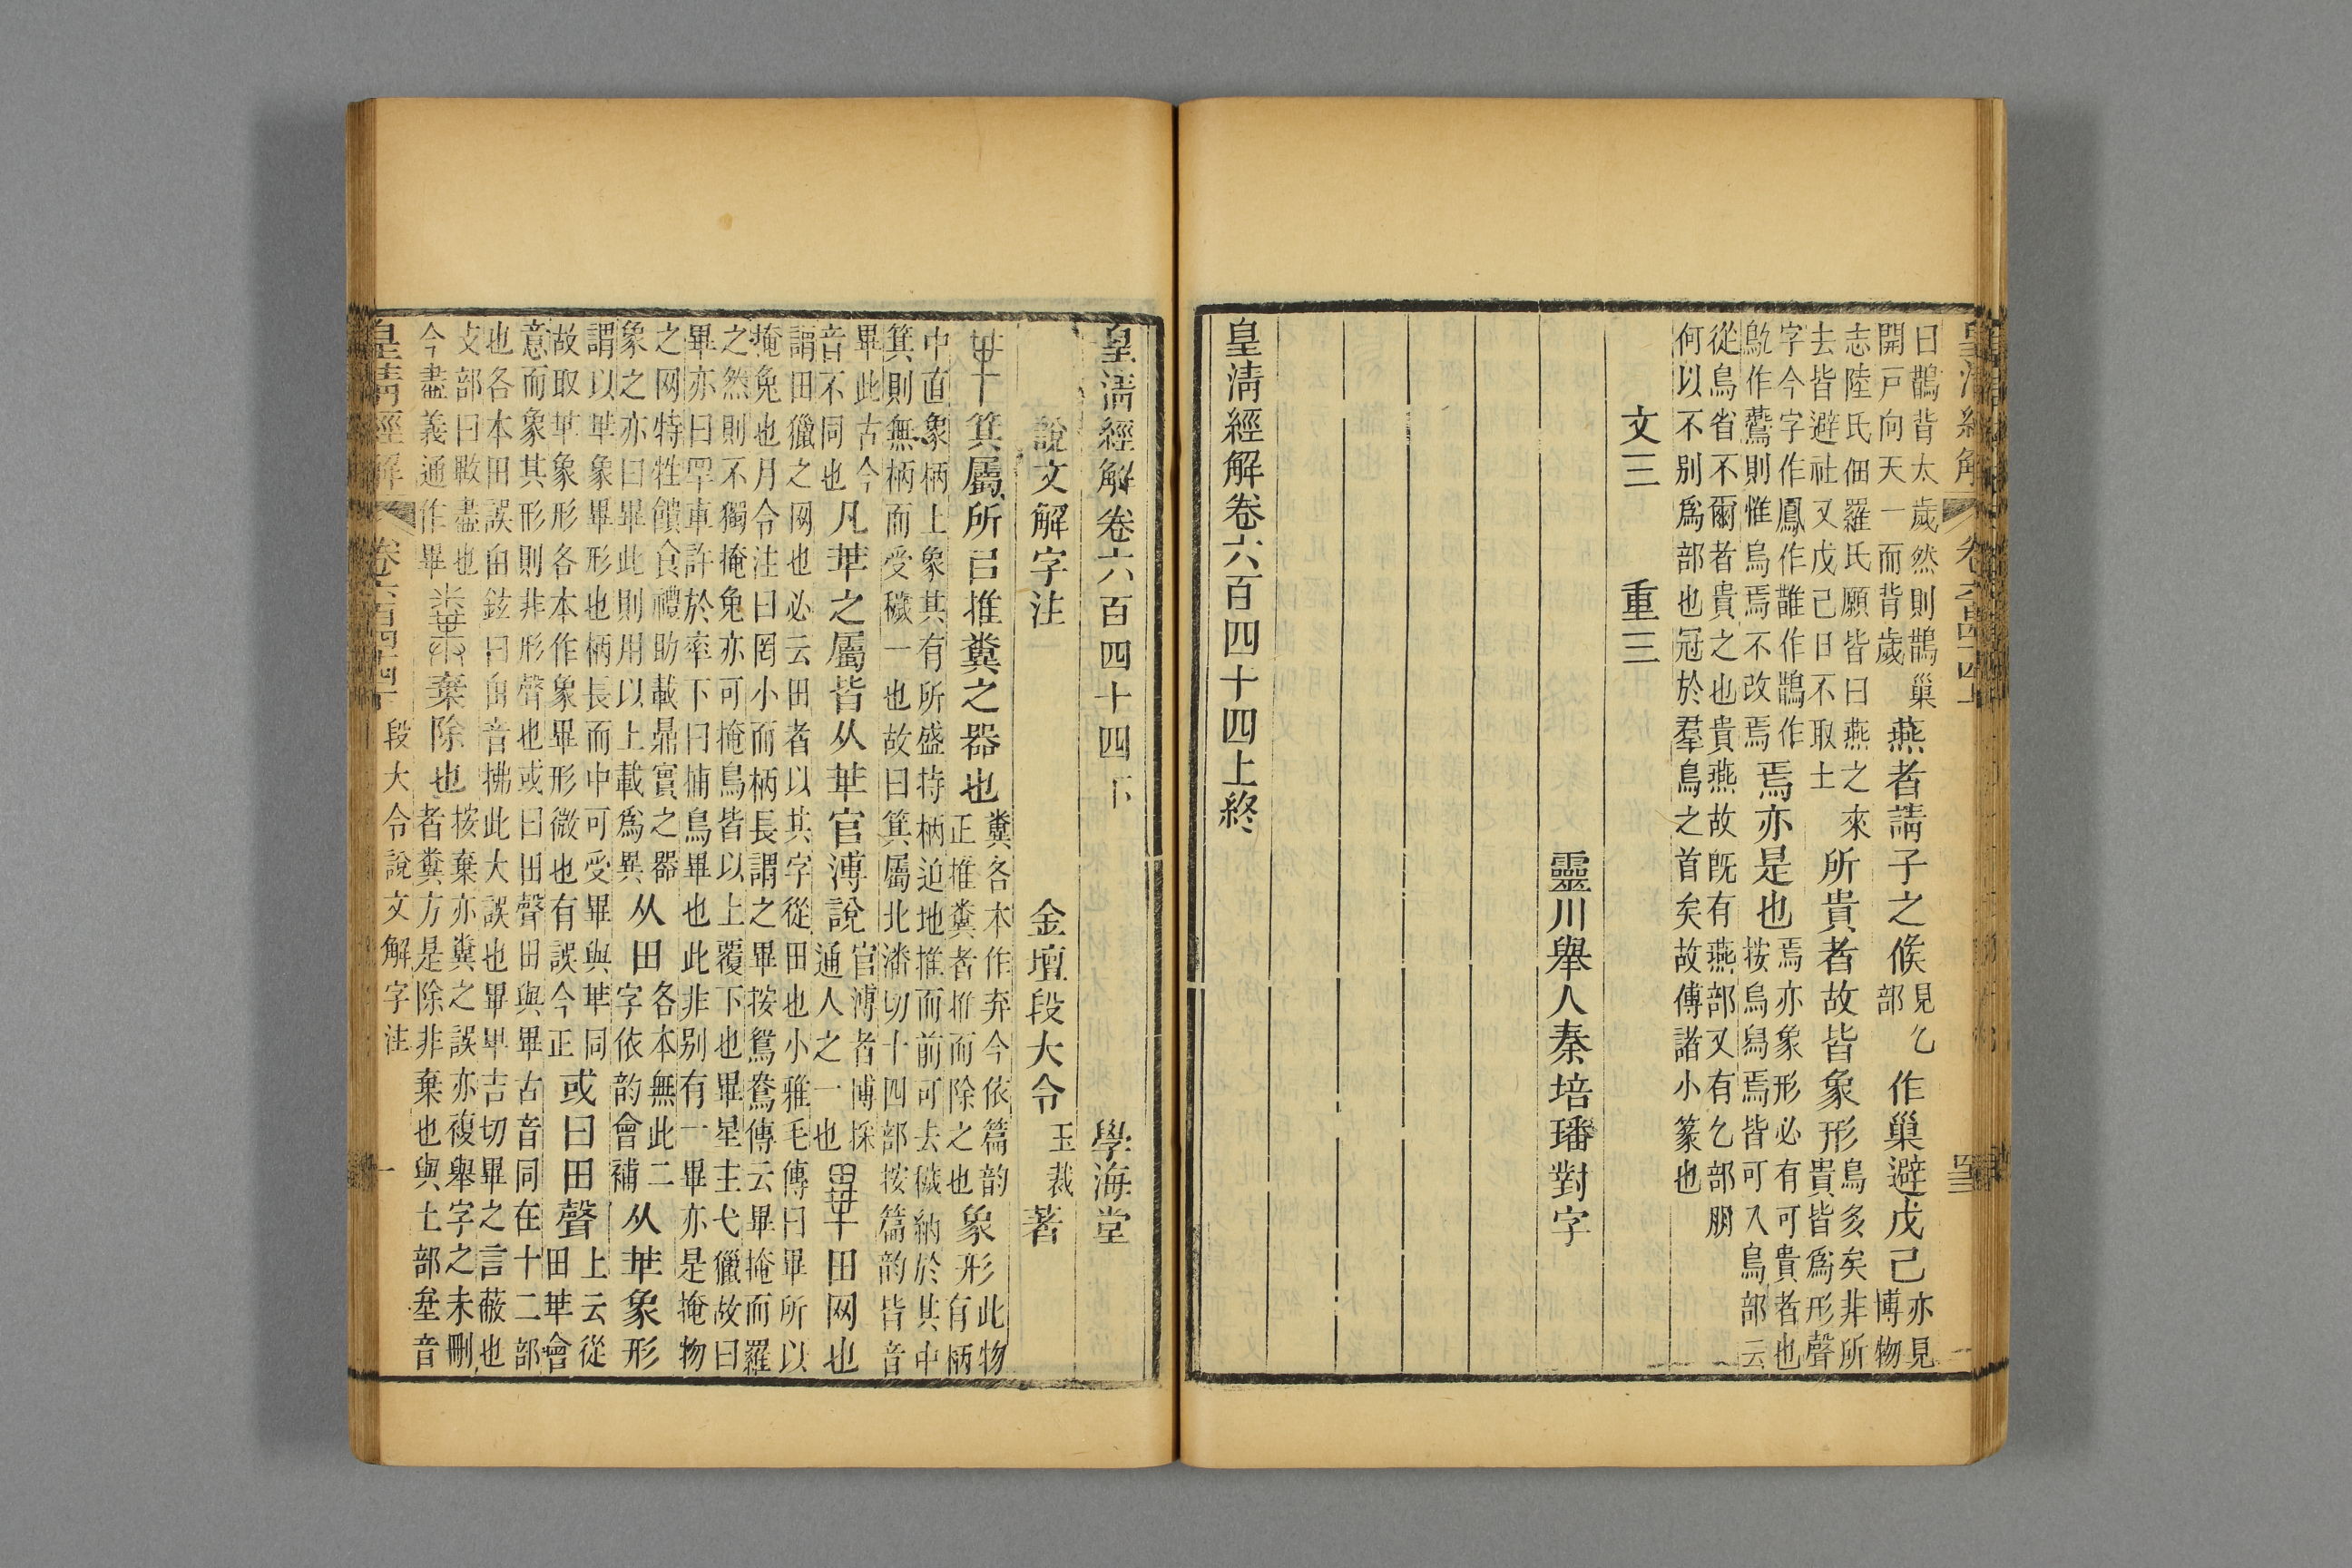 皇清經解 卷六百四十四上
曰鵲背太歲然則鵲巢
開戶向天一而背歲
燕者請子之𠋫
見乙
部
作巢避戊己
亦見
博物
志陸氏佃羅氏願皆曰燕之來
去皆避社又戊己日不取土
所貴者故皆象形
鳥多矣非所
貴皆爲形聲
字今字作鳳作雛作鵲作
鳦作鷰則惟烏焉不改焉
焉亦是也
焉亦象形必有可貴者也
按烏舄焉皆可入鳥部云
從鳥省不爾者貴之也貴燕故旣有燕部又有乙部朋
何以不別爲部也冠於羣鳥之首矣故傅諸小篆也
文三 重三
靈川舉人秦培璠對字
皇清經解卷六百四十四上終
皇清經解卷六百四十四下 學海堂
說文解字注 金壇段大令玉裁著
𠦒箕屬所㠯推糞之器也
糞各本作弃今依篇韵
正推糞者推而除之也
象形
此物
有柄
中直象柄上象其有所盛持柄迫地推而前可去穢納於其中
箕則無柄而受穢一也故曰箕屬北潘切十四部按篇韵皆音
畢此古今
音不同也
凡𠦒之屬皆从𠦒官溥說
官溥者博採
通人之一也
畢田网也
謂田獵之网也必云田者以其字從田也小雅毛傳曰畢所以
掩兔也月令注曰罔小而柄長謂之畢按鴛鴦傳云畢掩而羅
之然則不獨掩兔亦可掩鳥皆以上覆下也畢星主弋獵故曰
畢亦曰罕車許於率下曰捕鳥畢也此非別有一畢亦是掩物
之网特牲饋食禮助載鼎實之器
象之亦曰畢此則用以上載爲異
从田
各本無此二
字依韵會補
从𠦒象形
謂以𠦒象畢形也柄長而中可受畢與𠦒同
故取𠦒象形各本作象畢形微也有誤今正
或曰田聲
上云從
田𠦒會
意而象其形則非形聲也或曰田聲田與畢古音同在十二部
也各本田誤甶鉉曰甶音拂此大誤也畢畢吉切畢之言蔽也
攴部曰㪤盡也
今盡義通作畢
糞棄除也
按棄亦糞之誤亦複舉字之未刪
者糞方是除非棄也與土部坴音
皇清經解 卷六百四十四下 段大令說文解字注 一